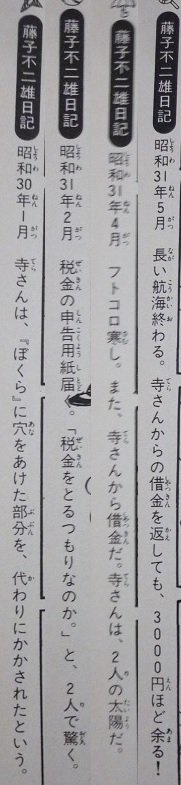 藤子不二雄日記 昭和31年5月 長い航海終わる。寺さんからの借金を返しても、3000円ほど余る!
藤子不二雄日記 昭和31年4月 フトコロ寒し。また、寺さんから借金だ。寺さんは、2人の太陽だ。
藤子不二雄日記 昭和31年2月 税金の申告用紙届く。「税金をとるつもりなのか。」と、2人で驚く。
藤子不二雄日記 昭和30年1月 寺さんは、『ぼくら』に穴をあけた部分を、代わりにかかされたという。